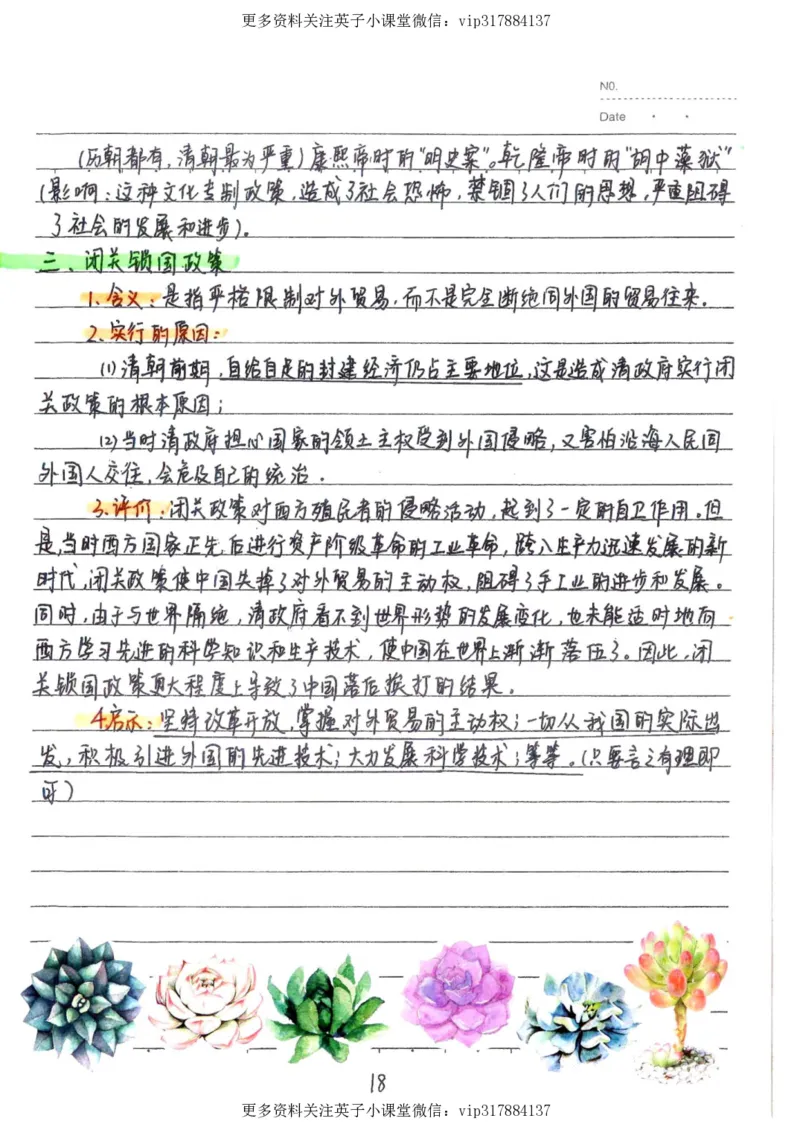 更多资料关注英子小课堂微信：vip317884137
NO.
Date
(历朝都有，清朝最为严重)康熙帝时的“明史案”。乾隆帝时的“胡中藻狱”
(影响：这种文化专制政策，造成了社会恐怖，禁锢了人们的思想，严重阻碍
了社会的发展和进步)。
三、闭关锁国政策
1.含义：是指严格限制对外贸易，而不是完全断绝同外国的贸易往来。
2.实行的原因：
(1)清朝前期，自给自足的封建经济仍占主要地位，这是造成清政府实行闭
关政策的根本原因；
(2)当时清政府担心国家的领土主权受到外国侵略，又害怕沿海人民同
外国人交往，会危及自己的统治.
3.评价：闭关政策对西方殖民者的侵略活动，起到了一定的自卫作用。但
是，当时西方国家正先，后进行资产阶级革命的工业革命，跨入生产力迅速发展的新
时代，闭关政策使中国失掉了对外贸易的主动权，阻碍了手工业的进步和发展。
同时，由于与世界隔绝，清政府看不到世界形势的发展变化，也未能适时地向
西方学习先进的科学知识和生产技术，使中国在世界上渐渐落伍了。因此，闭
关锁国政策更大程度上导致了中国落后挨打的结果。
4启示：坚持改革开放，掌握对外贸易的主动权；一切从我国的实际出
发，积极引进外国的先进技术；大力发展科学技术；等等。(只要言之有理即
可)
18
更多资料关注英子小课堂微信：vip317884137